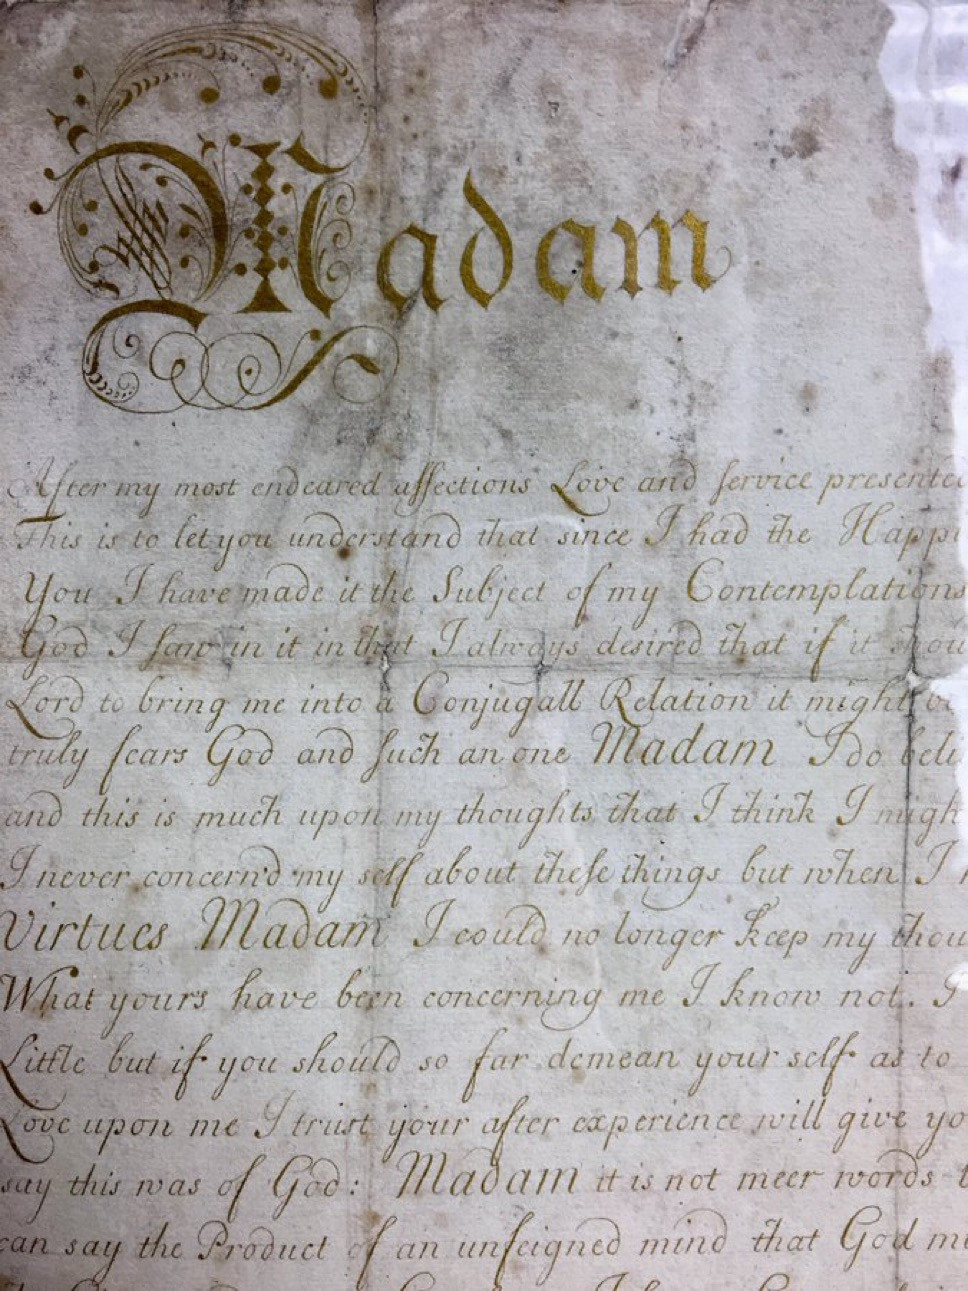 Madam
After my most endeared affections Love and service presented
This is to let you understand that since I had the Happi
You I have made it the Subject of my Contemplations
God I saw in it in that I always desired that if it shou
Lord to bring me into a Conjugall Relation it might be
truly fears God and such an one Madam I do beli
and this is much upon my thoughts that I think I migh
I never concern'd my self about these things but when I
Virtues Madam I could no longer keep my thou
What yours have been concerning me I know not. I
Little but if you should so far demean your self as to
Love upon me I trust your after experience will give yo
say this was of God: Madam it is not meer words t
can say the Product of an unfeigned mind that God me